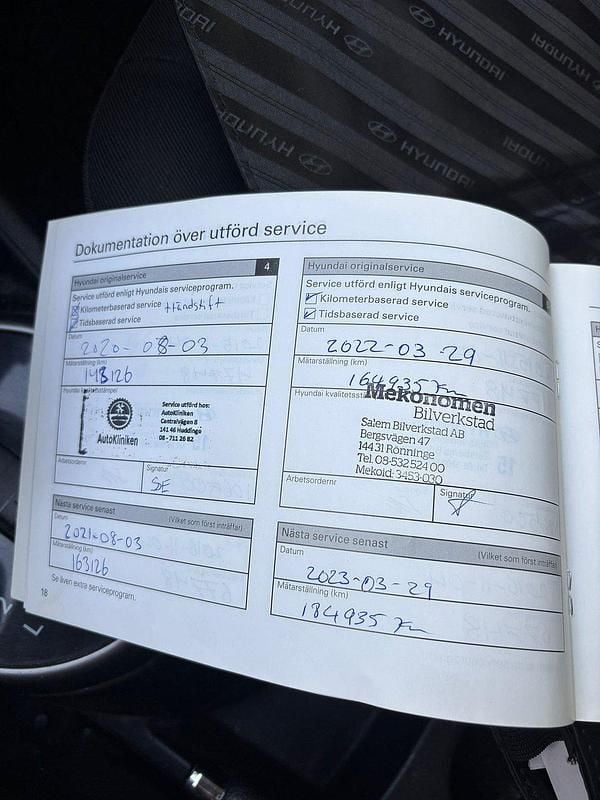 HYUNDAI
HYUNDAI
HYUNDAI
HYUNDAI
HYUNDAI
HYUNDAI
Dokumentation över utförd service
Hyundai originalservice 4
Service utförd enligt Hyundais serviceprogram.
Kilometerbaserad service
Tidsbaserad service
Datum
2020-08-03
Mätarställning (km)
143126
Service utförd hos:
AutoKliniken
Centralvägen 8
141 46 Huddinge
08 - 711 26 82
AutoKliniken
Arbetsordernr
Signatur
SE
Nästa service senast
Datum (Vilket som först inträffar)
2021-08-03
Mätarställning (km)
163126
Se även extra serviceprogram.
18
Hyundai originalservice
Service utförd enligt Hyundais serviceprogram.
Kilometerbaserad service
Tidsbaserad service
Datum
2022-03-29
Mätarställning (km)
164935 Km
Hyundai
Mekonomen
Bilverkstad
Salem Bilverkstad AB
Bergsvägen 47
144 31 Rönninge
Tel. 08-532 524 00
Mekoid: 3453-030
Arbetsordernr
Signatur
Nästa service senast
Datum (Vilket som först inträffar)
2023-03-29
Mätarställning (km)
184935 Km